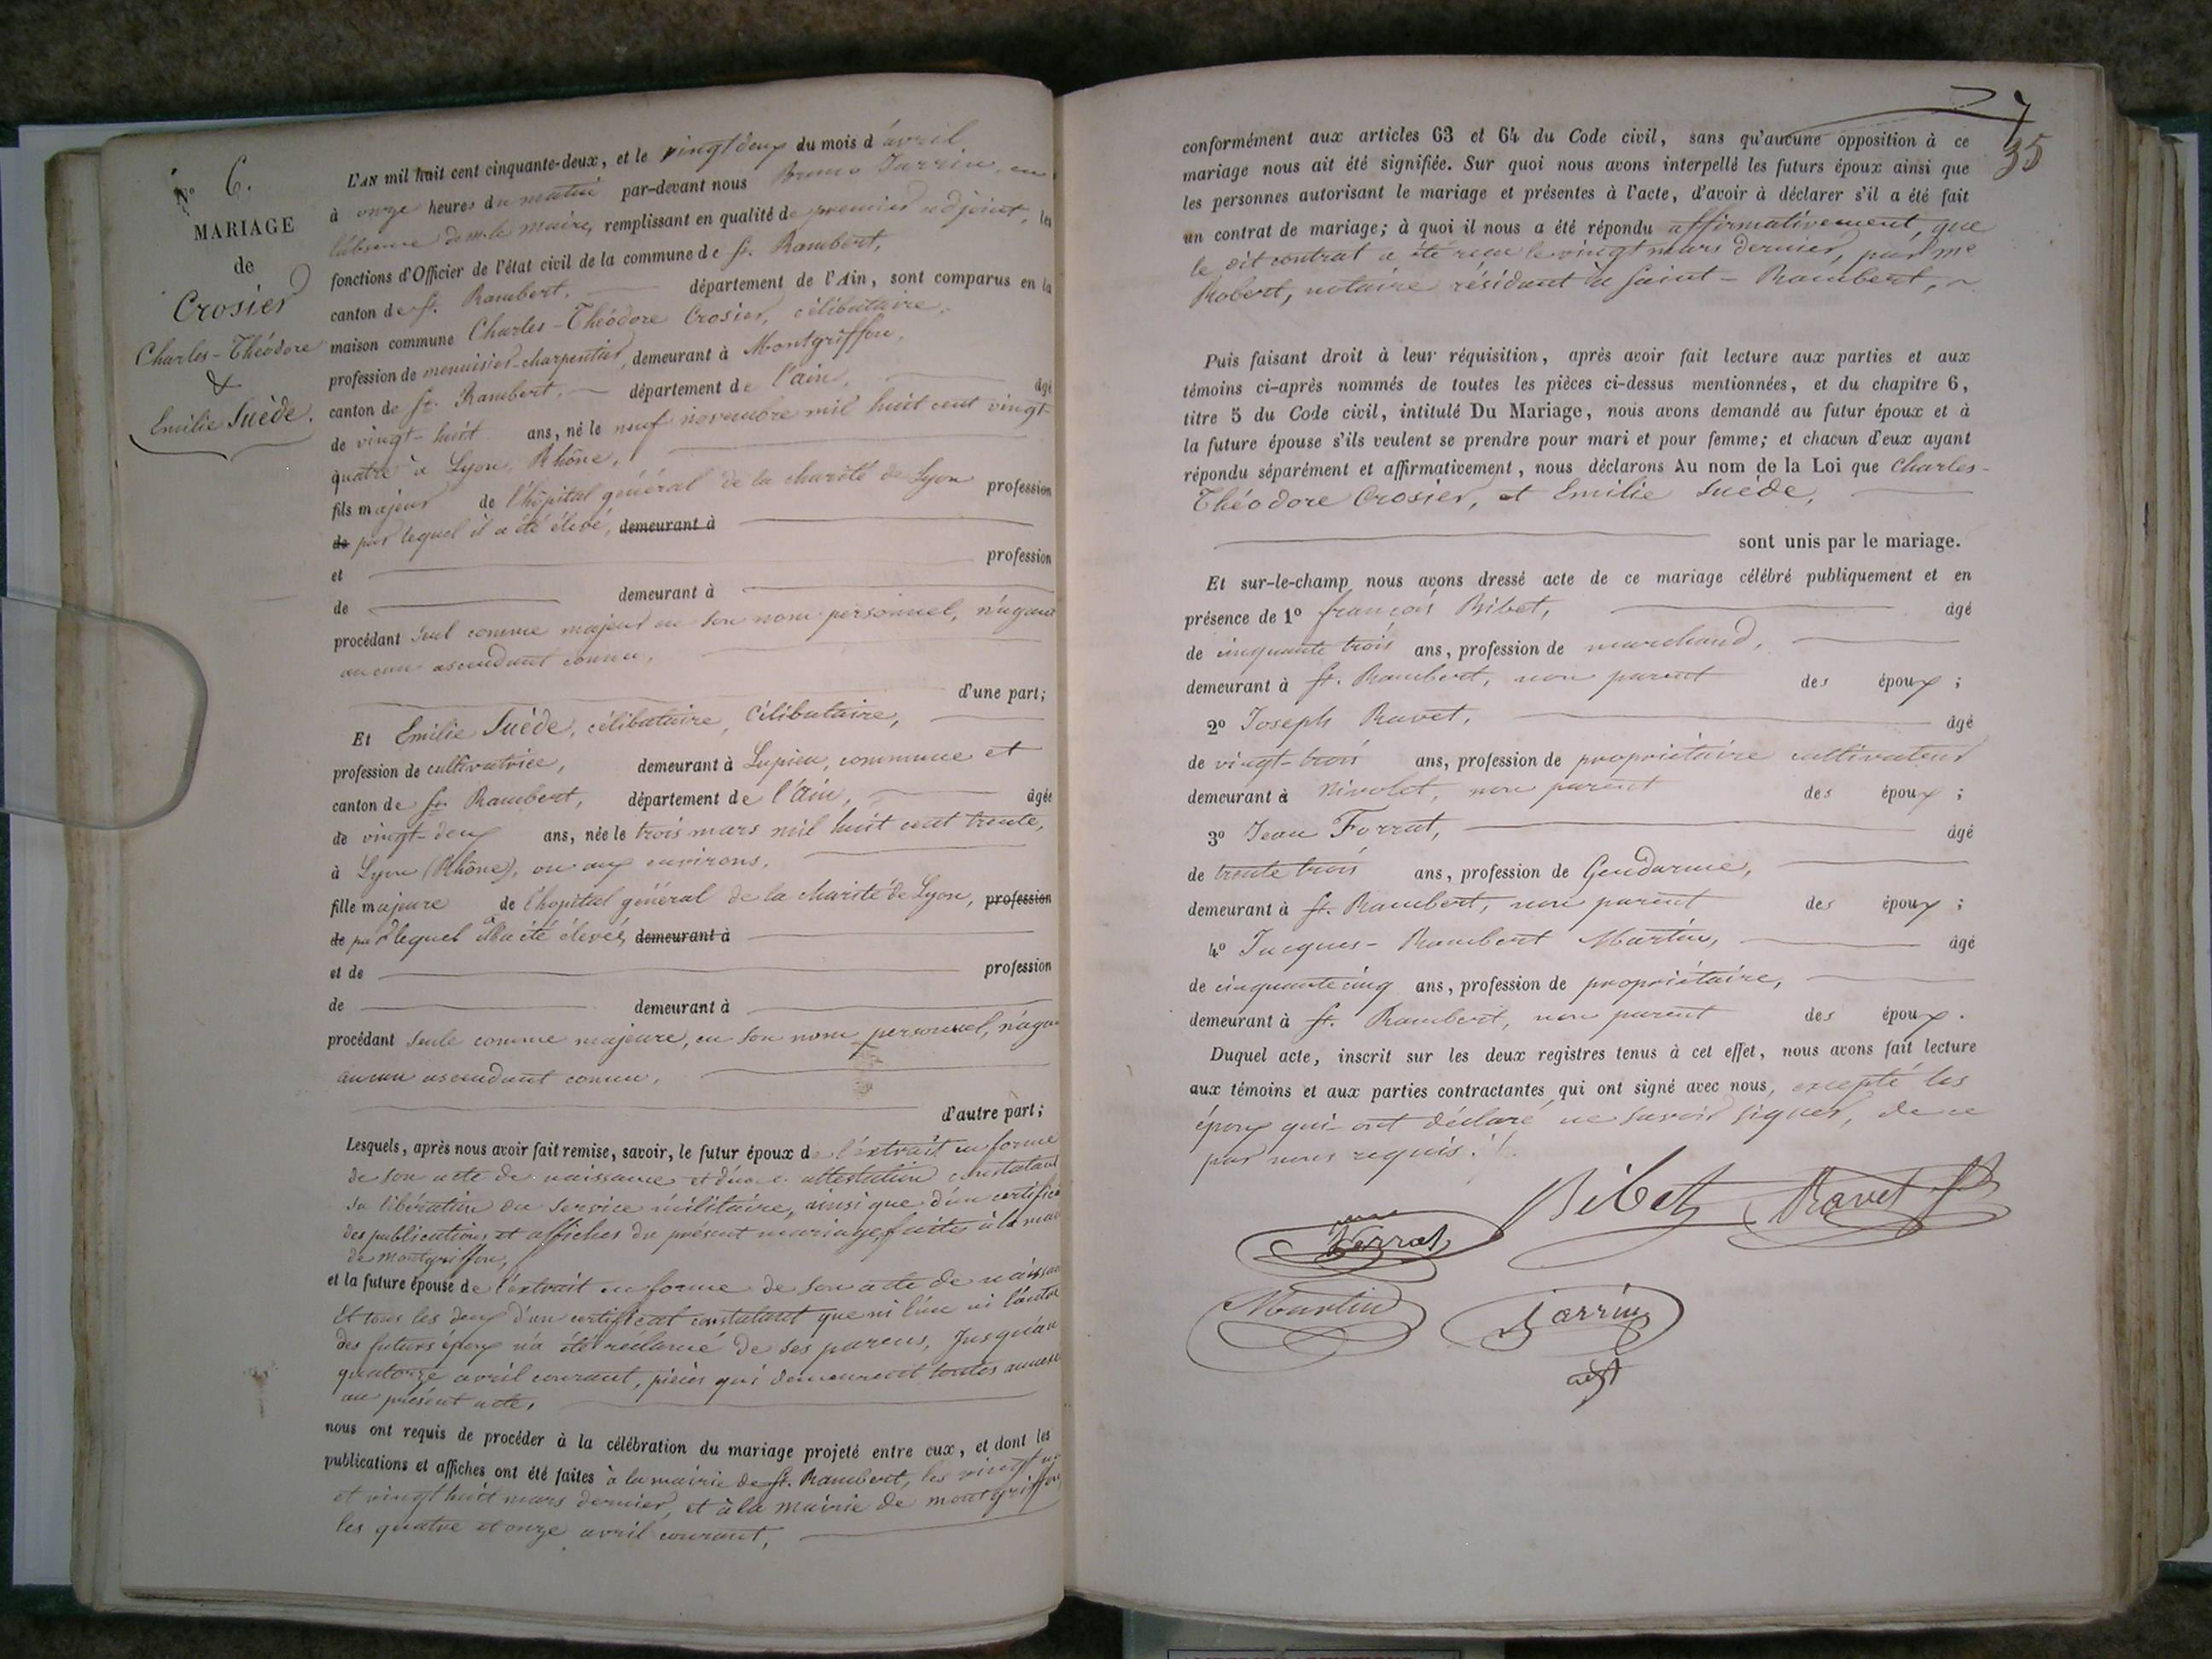 N° 6.
MARIAGE
de
Crosier
Charles-Théodore
&
Emilie Suède.
L'AN mil huit cent cinquante-deux, et le vingt deux du mois d'avril
à onze heures du matin par-devant nous Bruno Jarrin, en
l'absence de mr le maire, remplissant en qualité de premier adjoint, les
fonctions d'Officier de l'état civil de la commune de St. Rambert,
canton de St. Rambert, département de l'Ain, sont comparus en la
maison commune Charles-Théodore Crosier, célibataire,
profession de menuisier-charpentier, demeurant à Montgriffon,
canton de St. Rambert, département de l'ain, âgé
de vingt-huit ans, né le neuf novembre mil huit cent vingt-
quatre à Lyon, Rhône,
fils majeur de l'hôpital général de la charité de Lyon profession
de par lequel il a été élevé, demeurant à
et profession
de demeurant à
procédant seul comme majeur en son nom personnel, n'ayant
aucun ascendant connu,
d'une part;
Et Emilie Suède, célibataire, célibataire,
profession de cultivatrice, demeurant à Lupieu, commune et
canton de St. Rambert, département de l'Ain, âgée
de vingt-deux ans, née le trois mars mil huit cent trente,
à Lyon (Rhône), ou aux environs,
fille majeure de l'hopital général de la charité de Lyon, profession
de par lequel elle a été élevée, demeurant à
et de profession
de demeurant à
procédant seule comme majeure, en son nom personnel, n'ayant
aucun ascendant connu,
d'autre part;
Lesquels, après nous avoir fait remise, savoir, le futur époux de l'extrait en forme
de son acte de naissance et d'une attestation constatant
sa libération du service militaire, ainsi que d'un certificat
des publications et affiches du présent mariage, faites à la mai
de Montgriffon,
et la future épouse de l'extrait en forme de son acte de naissan
Et tous les deux d'un certificat constatant que ni l'un ni l'autre
des futurs époux n'a été réclamé de ses parens, jusqu'au
quatorze avril courant, pièces qui demeurent toutes annexé
au présent acte,
nous ont requis de procéder à la célébration du mariage projeté entre eux, et dont les
publications et affiches ont été faites à la mairie de St. Rambert, les vingt un
et vingt huit mars dernier, et à la mairie de montgriffon
les quatre et onze avril courant,
35
conformément aux articles 63 et 64 du Code civil, sans qu'aucune opposition à ce
mariage nous ait été signifiée. Sur quoi nous avons interpellé les futurs époux ainsi que
les personnes autorisant le mariage et présentes à l'acte, d'avoir à déclarer s'il a été fait
un contrat de mariage; à quoi il nous a été répondu affirmativement, que
le dit contrat a été reçu le vingt mars dernier, par me
Robert, notaire résidant à Saint-Rambert,
Puis faisant droit à leur réquisition, après avoir fait lecture aux parties et aux
témoins ci-après nommés de toutes les pièces ci-dessus mentionnées, et du chapitre 6,
titre 5 du Code civil, intitulé Du Mariage, nous avons demandé au futur époux et à
la future épouse s'ils veulent se prendre pour mari et pour femme; et chacun d'eux ayant
répondu séparément et affirmativement, nous déclarons Au nom de la Loi que Charles-
Théodore Crosier, et Emilie Suède,
sont unis par le mariage.
Et sur-le-champ nous avons dressé acte de ce mariage célébré publiquement et en
présence de 1° françois Bibet, âgé
de cinquante trois ans, profession de marchand,
demeurant à St. Rambert, non parent des époux;
2° Joseph Ravet, âgé
de vingt-trois ans, profession de propriétaire cultivateur
demeurant à Nivolet, non parent des époux;
3° Jean Forrat, âgé
de trente trois ans, profession de Gendarme,
demeurant à St. Rambert, non parent des époux;
4° Jacques-Rambert Martin, âgé
de cinquante cinq ans, profession de propriétaire,
demeurant à St. Rambert, non parent des époux.
Duquel acte, inscrit sur les deux registres tenus à cet effet, nous avons fait lecture
aux témoins et aux parties contractantes qui ont signé avec nous, excepté les
époux qui ont déclaré ne savoir signer, de ce
par nous requis.
Bibet Ravet
Martin Jarrin
adjt